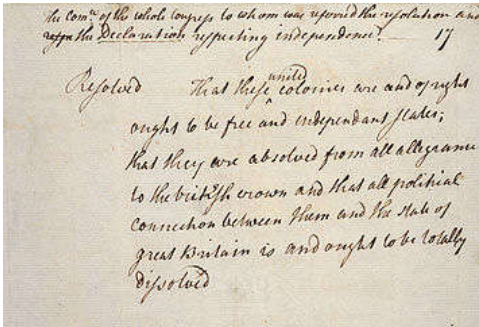 The Com.ee of the whole Congress to whom was referred the resolution and
the Declaration respecting independence. 17
Resolved That these united colonies are and of right
ought to be free and independant states;
that they are absolved from all allegiance
to the british crown and that all political
connection between them and the state of
great Britain is and ought to be totally
dissolved